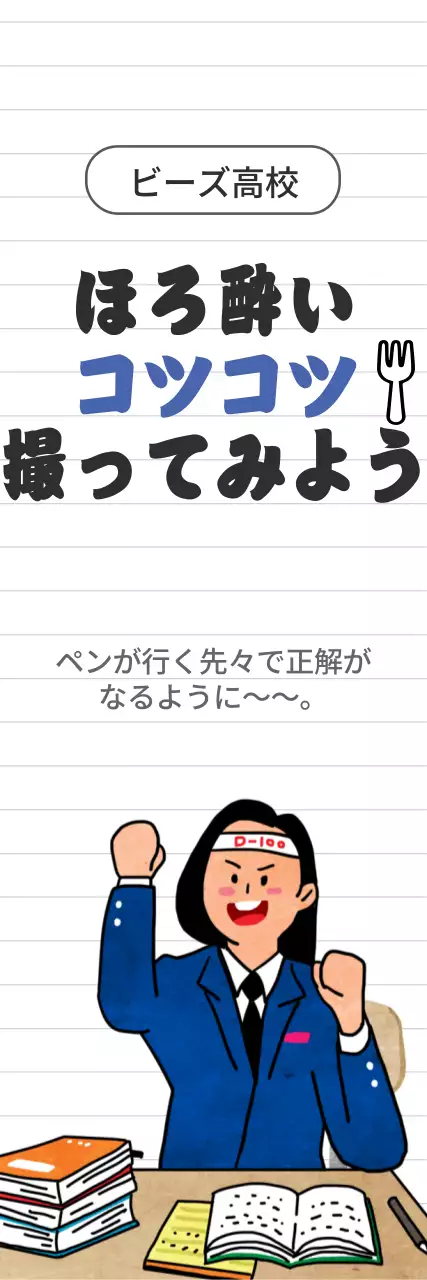 ビーズ高校
ほろ酔い
コツコツ
撮ってみよう
ペンが行く先々で正解が
なるように〜〜。
D-100